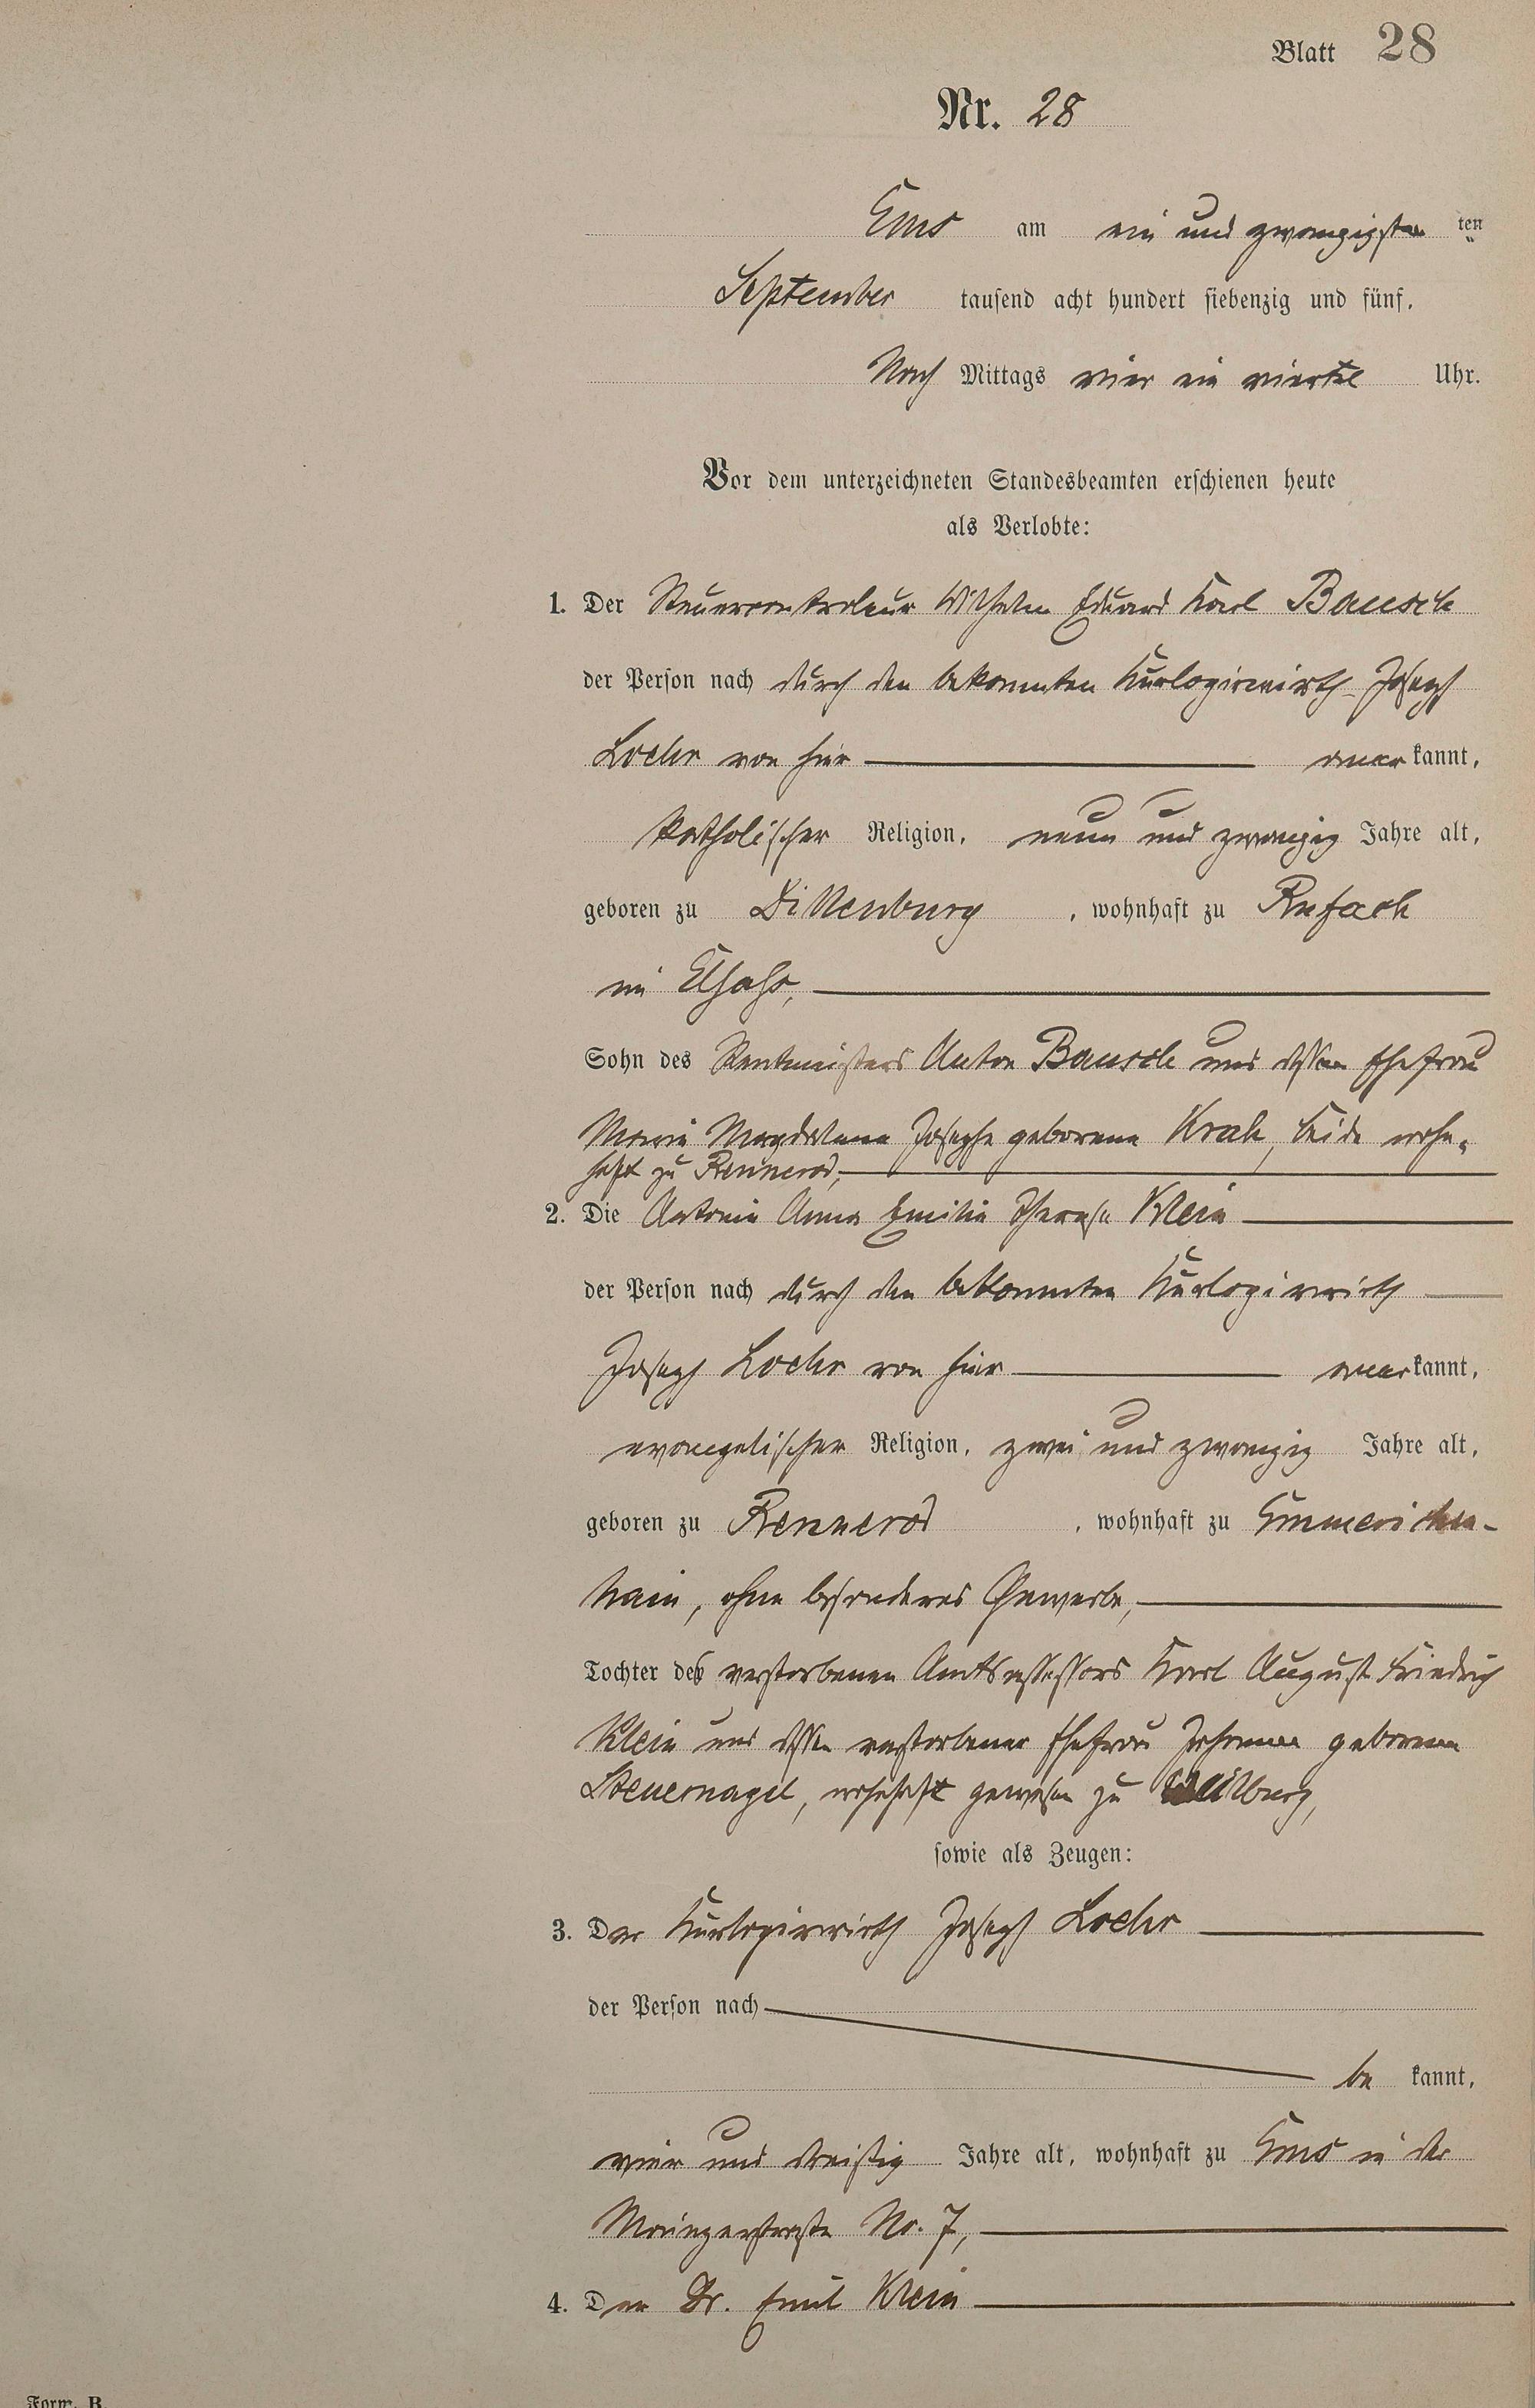 Blatt 28
Nr. 28
Ems am ein und zwanzigsten ten
September tausend acht hundert siebenzig und fünf,
Nach Mittags vier ein viertel Uhr.
Vor dem unterzeichneten Standesbeamten erschienen heute
als Verlobte:
1. Der Steuercontroleur Wilhelm Eduard Karl Bausch
der Person nach durch den bekannten Kurlogirwirth Joseph
Loehr von hier anerkannt,
katholischer Religion, neun und zwanzig Jahre alt,
geboren zu Dillenburg, wohnhaft zu Rufach
im Elsaß,
Sohn des Rentmeisters Anton Bausch und dessen Ehefrau
Maria Magdalena Josepha geborene Krah, beide wohn-
haft zu Rennerod,
2. Die Antonie Anna Emilie Therese Klein
der Person nach durch den bekannten Kurlogirwirth
Joseph Loehr von hier anerkannt,
evangelischer Religion, zwei und zwanzig Jahre alt,
geboren zu Rennerod, wohnhaft zu Emmerichen-
hain, ohne besonderes Gewerbe,
Tochter des verstorbenen Amtsassessors Karl August Friedrich
Klein und dessen verstorbener Ehefrau Johanna geborenen
Steuernagel, wohnhaft gewesen zu Weilburg,
sowie als Zeugen:
3. Der Kurlogirwirth Joseph Loehr
der Person nach
be kannt,
vier und dreißig Jahre alt, wohnhaft zu Ems in der
Mainzerstraße No. 7,
4. Der Dr. Emil Klein
Form. B.